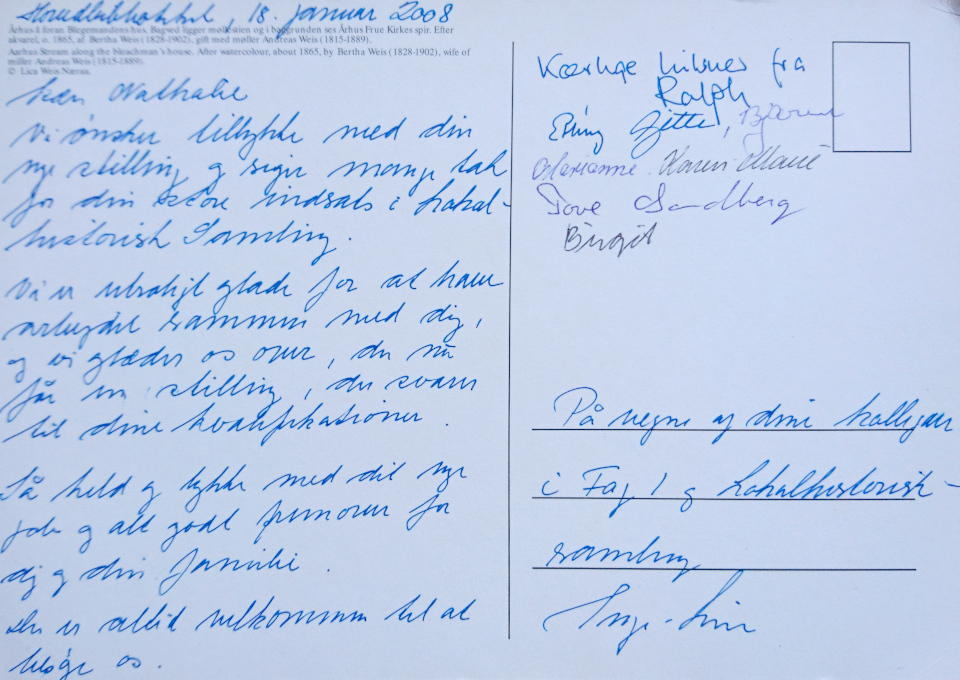 Hovedbiblioteket, 18. januar 2008
Århus å foran Blegemandens hus. Bagved ligger møllestien og i baggrunden ses Århus Frue Kirkes spir. Efter
akvarel, o. 1865, af Bertha Weis (1828-1902), gift med møller Andreas Weis (1815-1889).
Aarhus Stream along the bleachman's house. After watercolour, about 1865, by Bertha Weis (1828-1902), wife of
miller Andreas Weis (1815-1889).
© Lica Weis Næraa.
Kære Nathalie
Vi ønsker tillykke med din
nye stilling og siger mange tak
for din store indsats i Lokal-
historisk Samling.
Vi er utroligt glade for at have
arbejdet sammen med dig,
og vi glæder os over, du nu
får en stilling, der svarer
til dine kvalifikationer.
Så held og lykke med dit nye
job og alt godt fremover for
dig og din familie.
Du er altid velkommen til at
besøge os.
Kærlige hilsner fra
Ralph
Elling Gitte,
Marianne Karen Marie
Tove Sandberg
Birgit
På vegne af dine kolleger
i Fag 1 og Lokalhistorisk-
samling
Inge-Lise